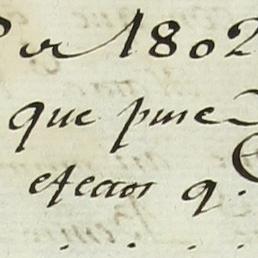 Por 1802
que puse
efectos q.